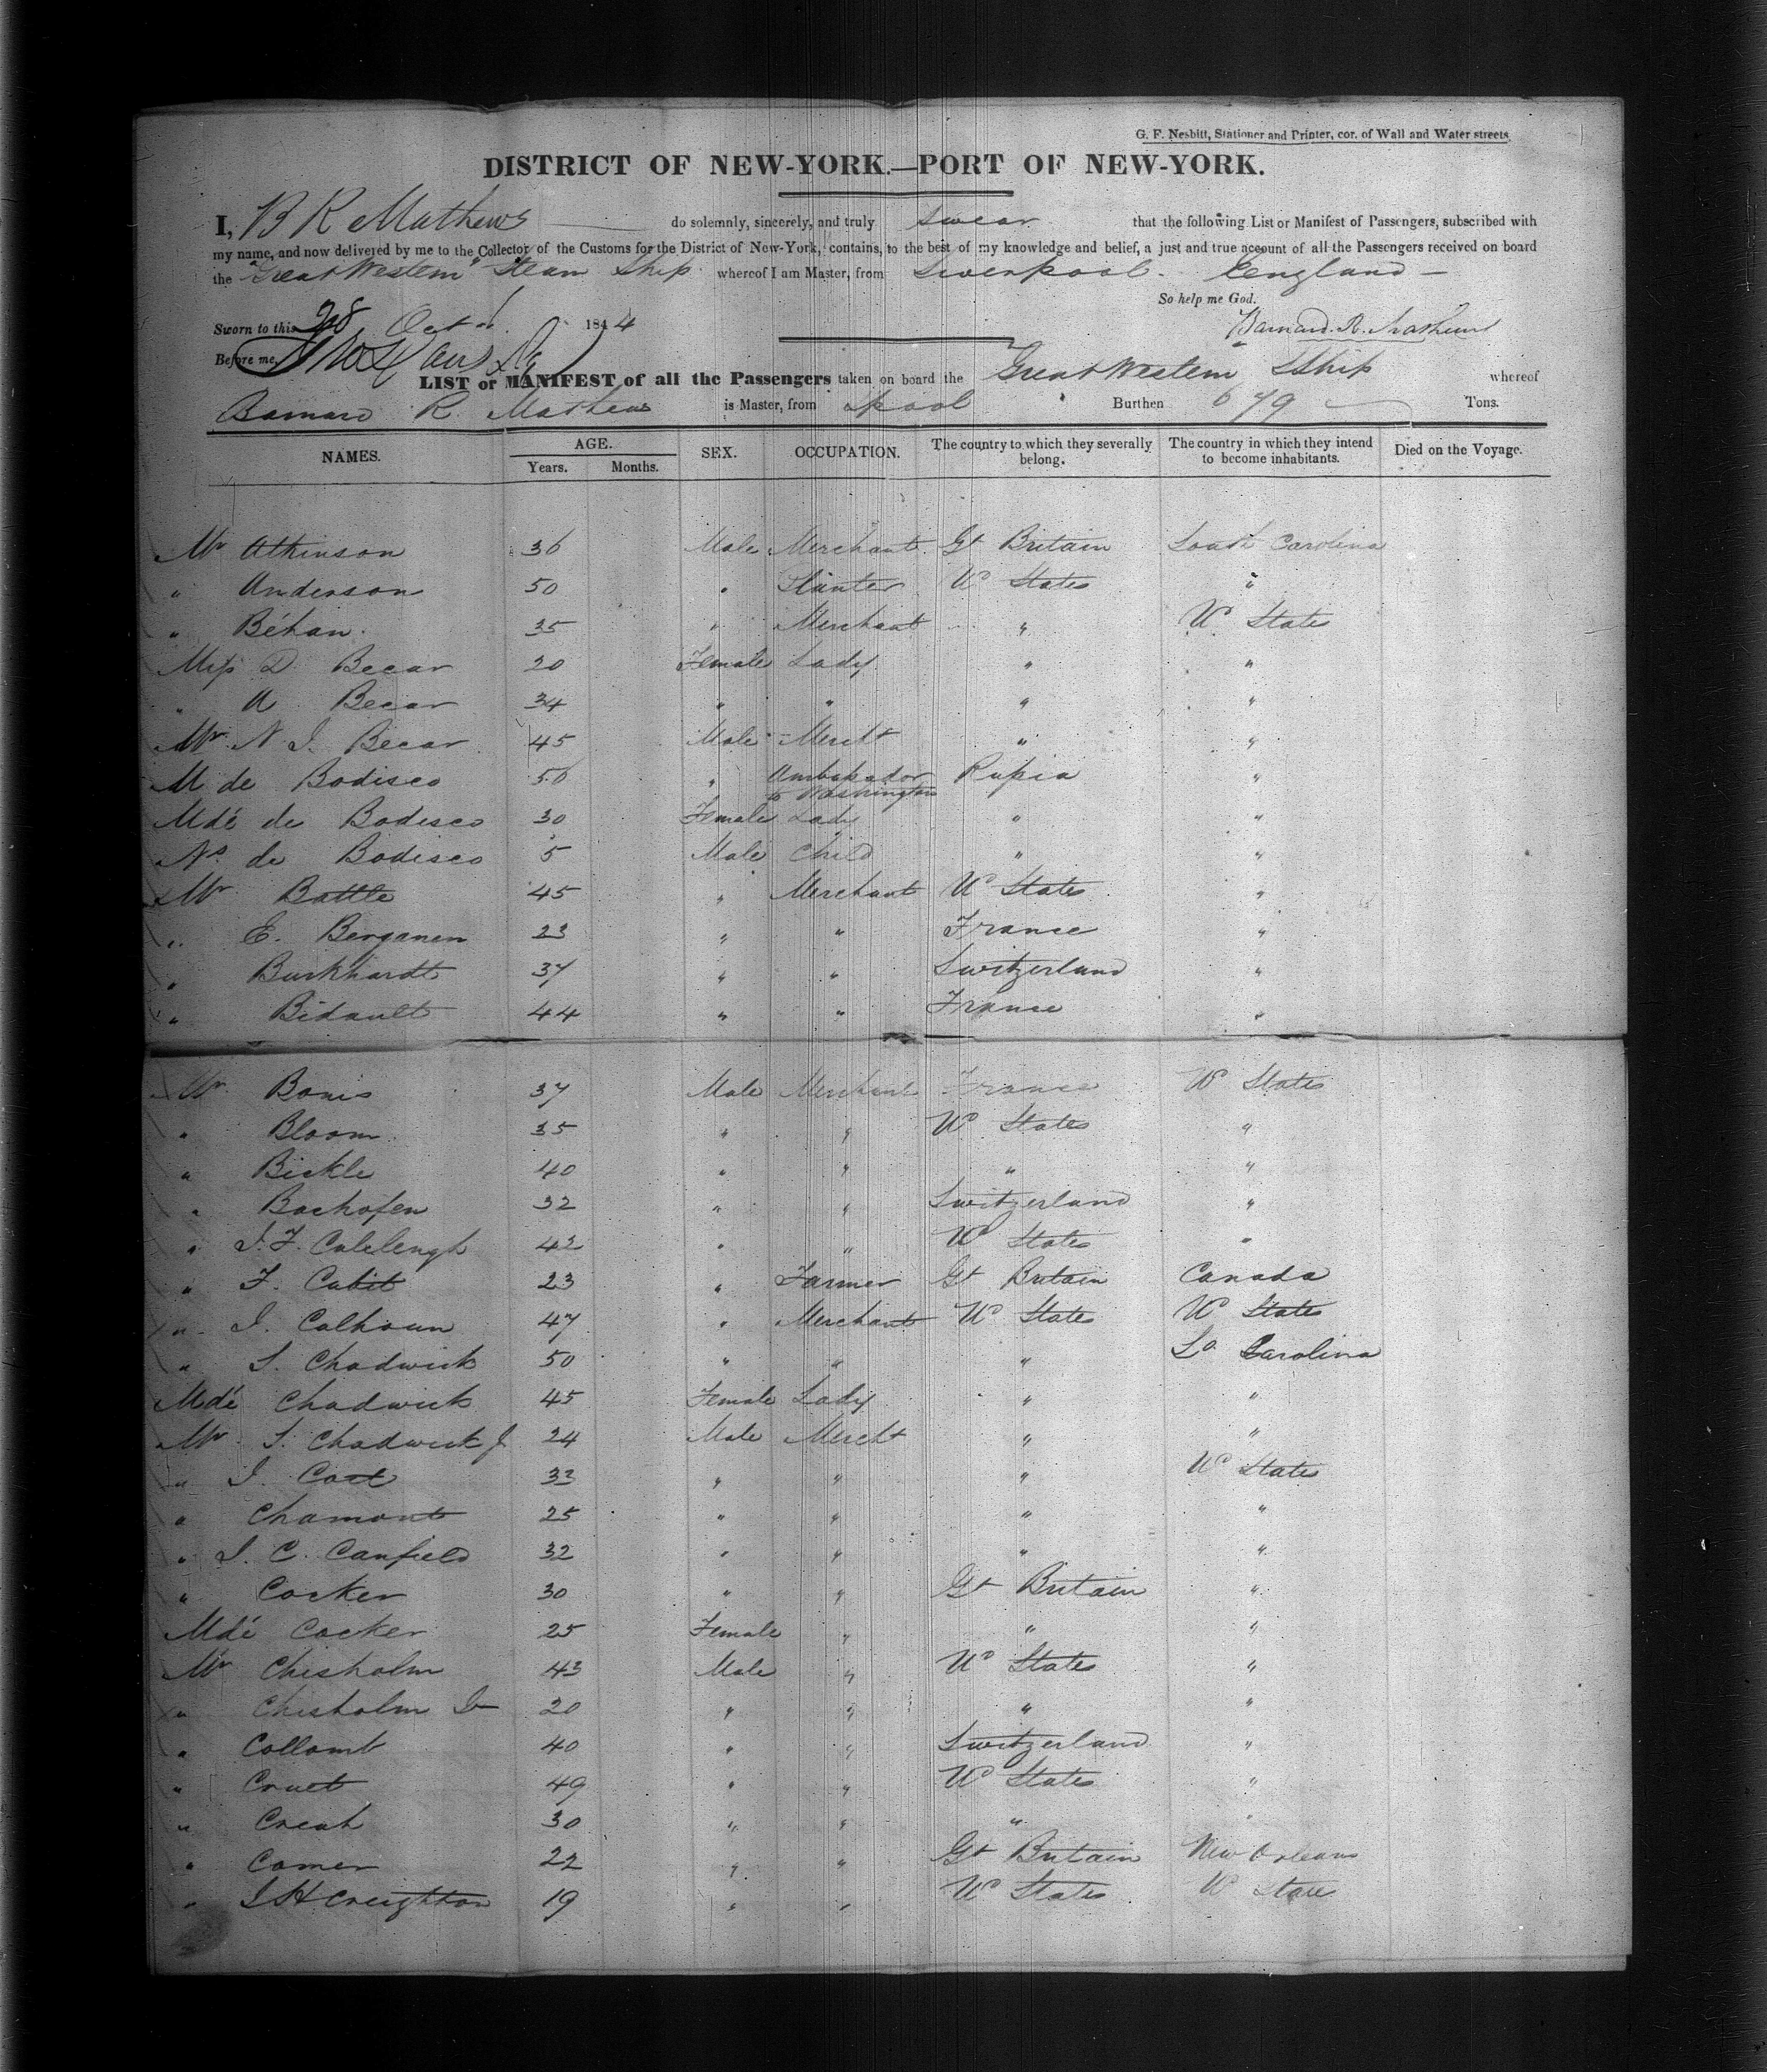 G. F. Nesbitt, Stationer and Printer, cor. of Wall and Water streets
DISTRICT OF NEW-YORK.—PORT OF NEW-YORK.
I, B R Mathews do solemnly, sincerely, and truly swear that the following List or Manifest of Passengers, subscribed with
my name, and now delivered by me to the Collector of the Customs for the District of New-York, contains, to the best of my knowledge and belief, a just and true account of all the Passengers received on board
the "Great Western" Steam Ship whereof I am Master, from Liverpool England —
So help me God.
Sworn to this 28 Oct 1844
Barnard. R. Mathews
Before me,
LIST or MANIFEST of all the Passengers taken on board the Great Western SShip whereof
Barnard R. Mathews is Master, from Lpool Burthen 679 Tons.
NAMES. AGE. SEX. OCCUPATION. The country to which they severally belong. The country in which they intend to become inhabitants. Died on the Voyage.
Years. Months.
Mr Atkinson 36 Male Merchant Gt Britain South Carolina
" Anderson 50 " Planter U States "
" Béhan 35 " Merchant " U States
Miss D. Becar 20 Female Lady " "
" A Becar 34 " " " "
Mr N J. Becar 45 Male Mercht " "
M de Bodisco 50 " Ambassador to Washington Russia "
Mdé de Bodisco 30 Female Lady " "
de Bodisco 5 Male Child " "
Mr Battle 45 " Merchant U States "
" E. Berganen 23 " " France "
" Burkhardt 37 " " Switzerland "
" Bidault 44 " " France "
Mr Bonis 37 Male Merchant France U States
" Bloom 35 " " U States "
" Bickle 40 " " " "
" Bachofen 32 " " Switzerland "
" J. F. Calelengh 42 " " U States "
" F. Cabit 23 " Farmer Gt Britain Canada
" J. Calhoun 47 " Merchant U States U States
" S. Chadwick 50 " " " So Carolina
Mdé Chadwick 45 Female Lady " "
Mr S. Chadwick J 24 Male Mercht " "
" J. Cost 33 " " " U States
" Chamont 25 " " " "
" J. C. Canfield 32 " " " "
" Cocker 30 " " Gt Britain "
Mdé Cocker 25 Female " " "
Mr Chisholm 43 Male " U States "
" Chisholm Jr 20 " " " "
" Collomb 40 " " Switzerland "
" Cruet 49 " " U States "
" Creah 30 " " " "
" Comer 22 " " Gt Britain New Orleans
" J H Creighton 19 " " U States U State